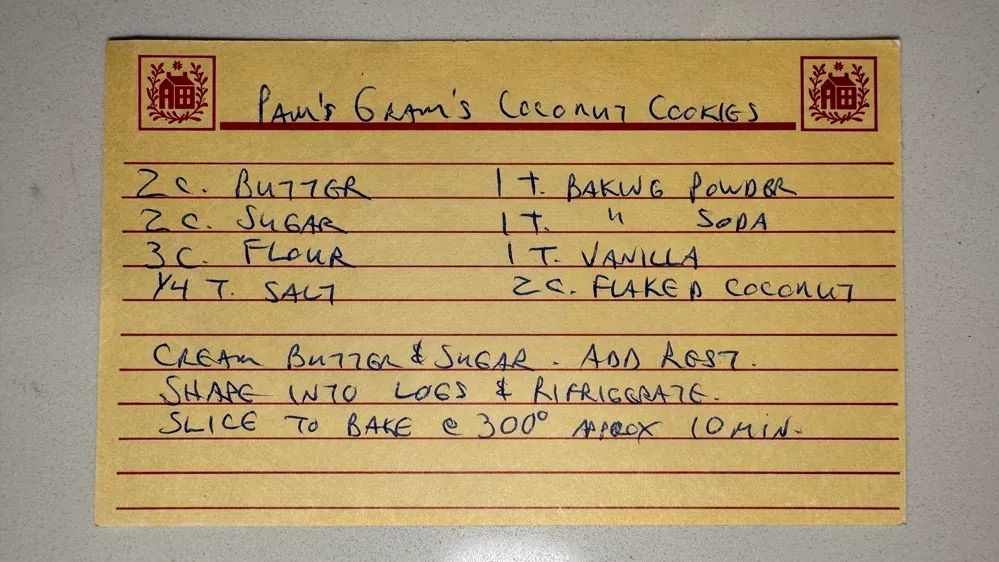 PAM'S GRAM'S COCONUT COOKIES
2 C. BUTTER 1 T. BAKING POWDER
2 C. SUGAR 1 T. " SODA
3 C. FLOUR 1 T. VANILLA
1/4 T. SALT 2 C. FLAKED COCONUT
CREAM BUTTER & SUGAR. ADD REST.
SHAPE INTO LOGS & RIFRIGERATE.
SLICE TO BAKE @ 300° APPROX 10 MIN.